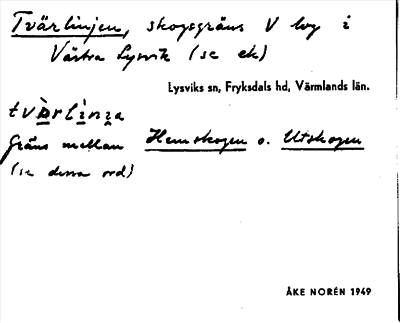 Tvärlinjen, skogsgräns V lvg i
Västra Lysvik (se ek)
Lysviks sn, Fryksdals hd, Värmlands län.
Gräns mellan Hemskogen o. Utskogen
(se dessa ord)
ÅKE NORÉN 1949